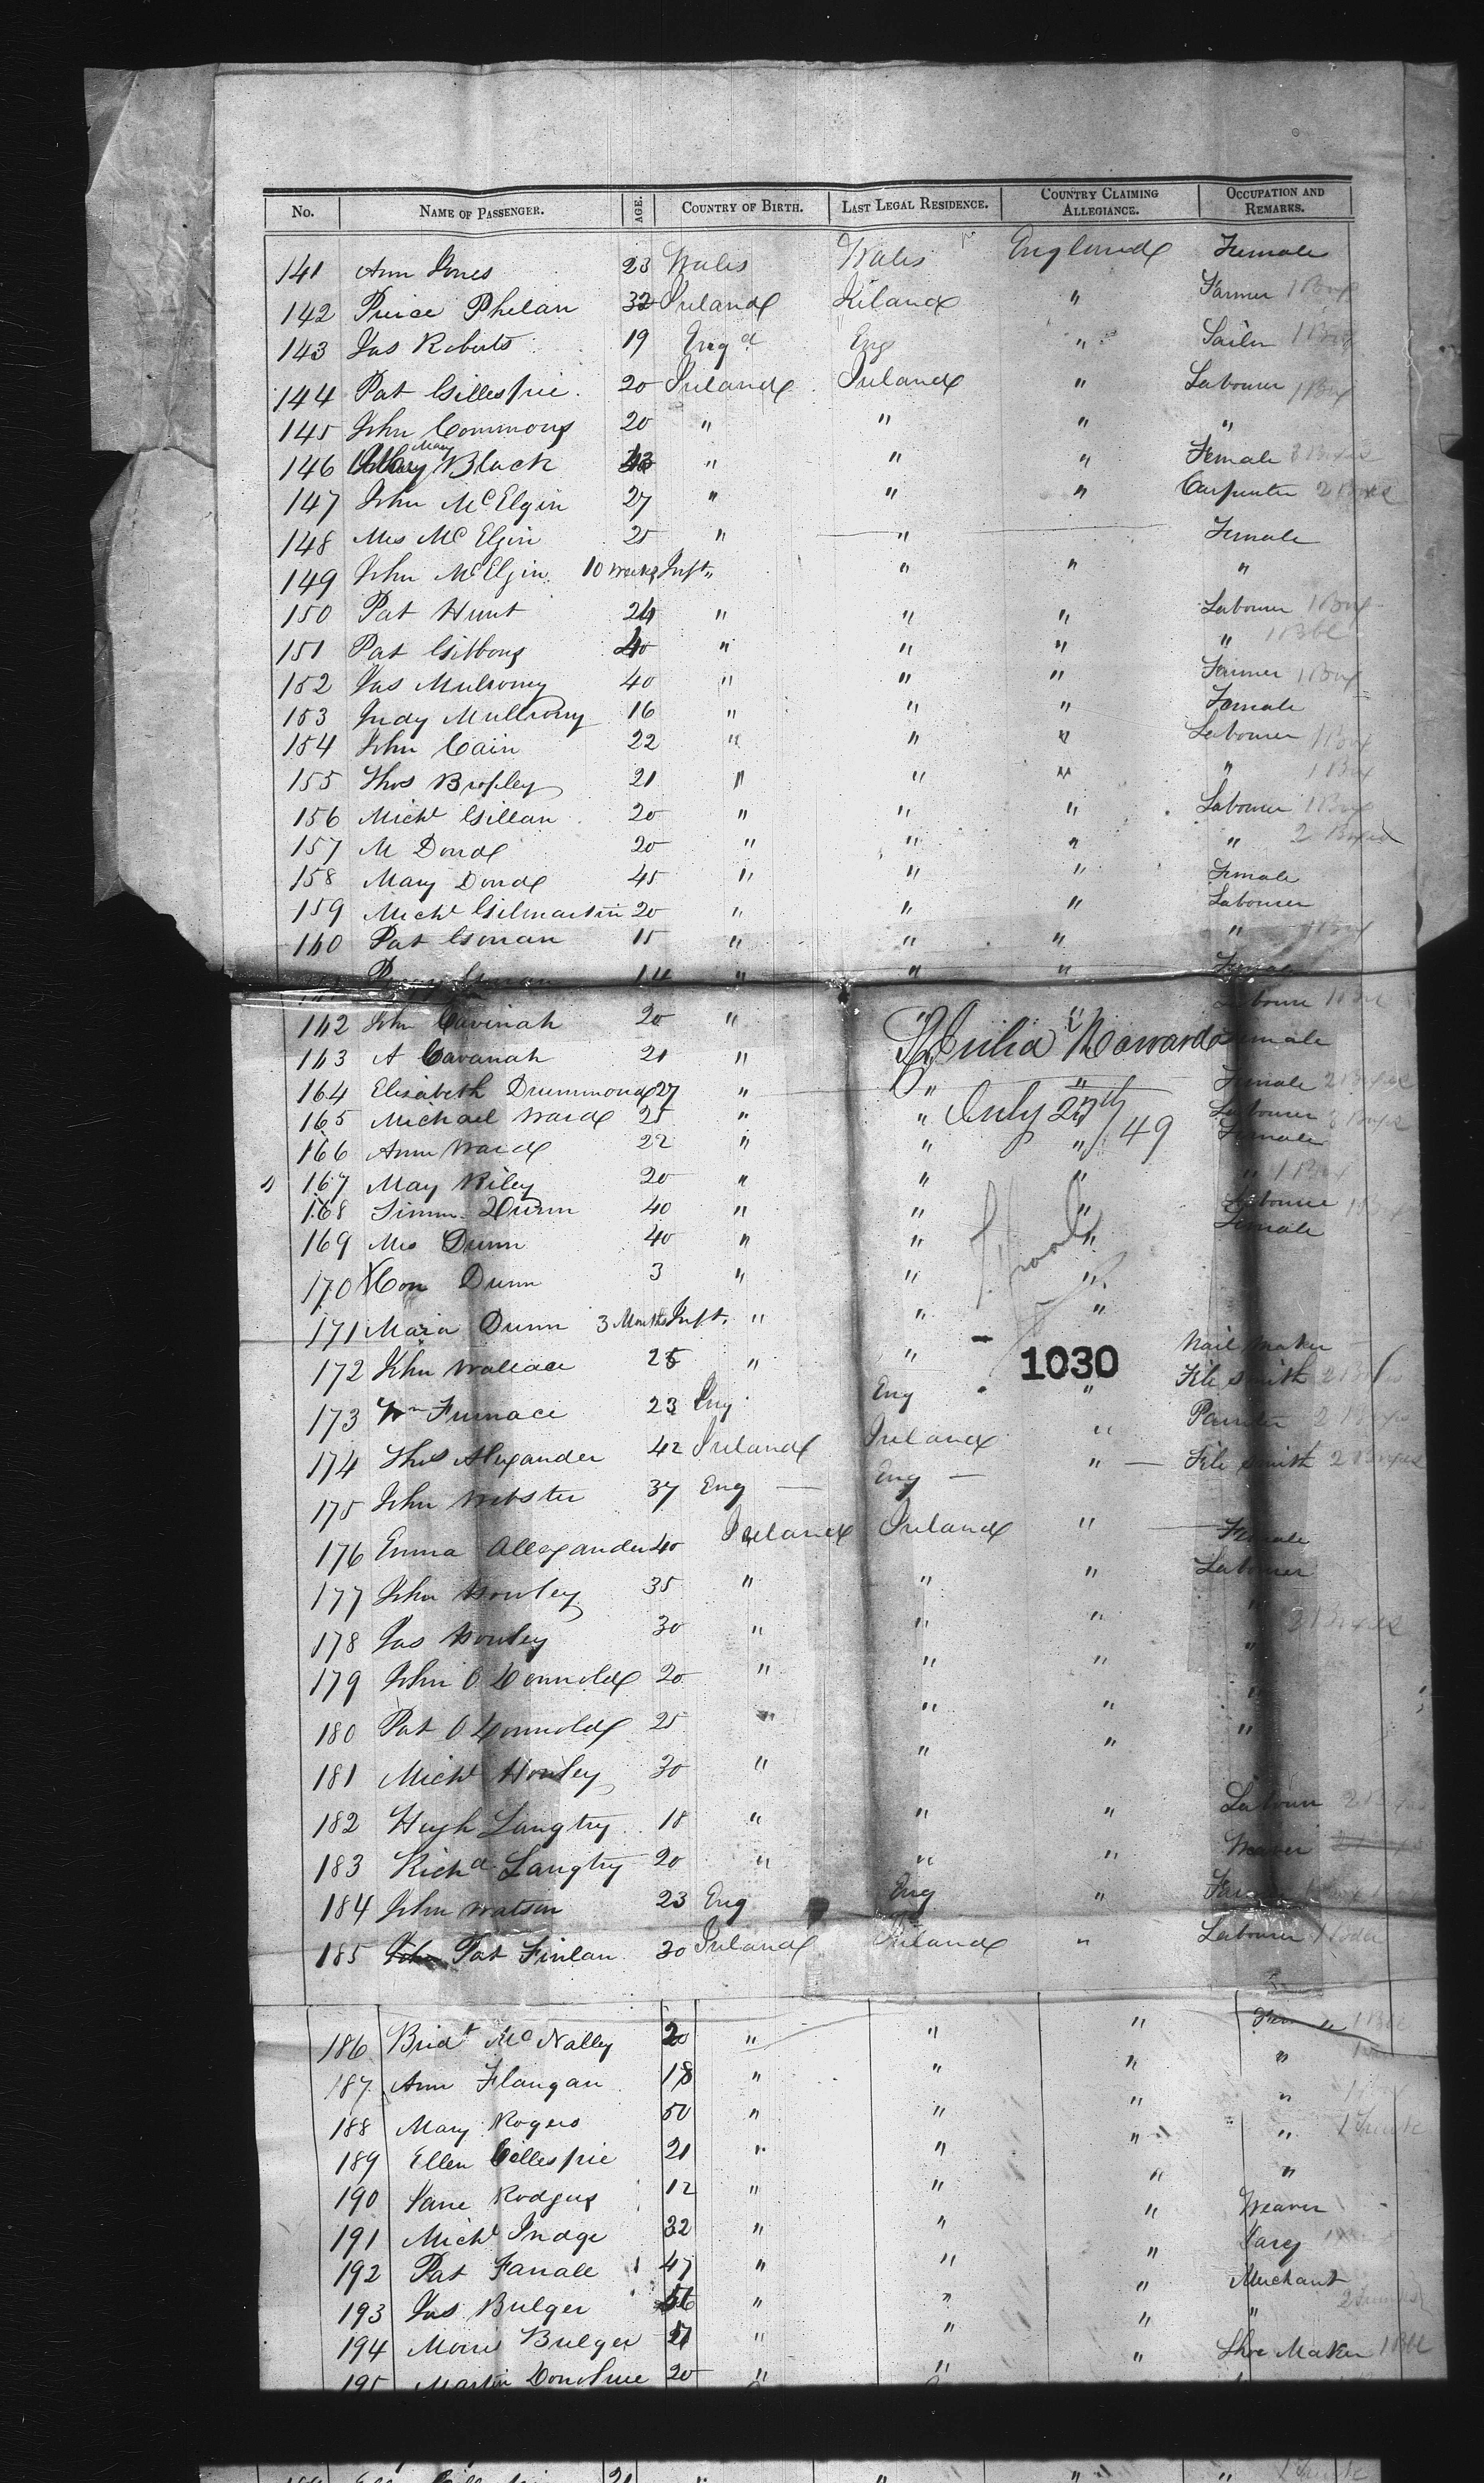 No. NAME OF PASSENGER. AGE. COUNTRY OF BIRTH. LAST LEGAL RESIDENCE. COUNTRY CLAIMING ALLEGIANCE. OCCUPATION AND REMARKS.
141 Ann Jones 23 Wales Wales England Female
142 Pierce Phelan 32 Ireland Ireland " Farmer 1 Box
143 Jas Roberts 19 Engd Eng " Sailor 1 Box
144 Pat Gillespie 20 Ireland Ireland " Labourer 1 Box
145 John Commons 20 " " " "
146 Mary Black " " " Female Boxes
147 John McElgin 27 " " " Carpenter 2 Boxes
148 Mrs McElgin 25 " " Female
149 John McElgin 10 weeks Inft " " " "
150 Pat Hunt 24 " " " Labourer 1 Box
151 Pat Gibbons 40 " " " " 1 Bbl
152 Jas Mulrony 40 " " " Farmer 1 Box
153 Judy Mullrony 16 " " " Female
154 John Cain 22 " " " Labourer 1 Box
155 Thos Brophey 21 " " " " 1 Box
156 Michl Gillan 20 " " " Labourer 1 Box
157 M Dowd 20 " " " " 2 Boxes
158 Mary Dowd 45 " " " Female
159 Michl Gilmartin 20 " " " Labourer
160 Pat Gonan 15 " " " " 1 Box
14 " " " Female
162 John Cavinah 20 " " " Labourer
163 A Cavanah 21 " " Female
Howard
164 Elisabeth Drummond 27 " " " Female 2 Boxes
165 Michael Ward 25 " " Labourer Boxes
July 25th/49
166 Ann Ward 22 " " " Female
167 May Riley 20 " " " " 1 Box
168 Simm. Dunn 40 " " " Labourer 1 Box
169 Mrs Dunn 40 " " " Female
170 Con Dunn 3 " " "
171 Maria Dunn 3 Months Inft. " " "
172 John Wallace 25 " " Nail Maker
1030
173 Wm Furnace 23 Eng Eng " File Smith 2 Boxes
174 Thos Alexander 42 Ireland Ireland " Painter 2 Boxes
175 John Webster 37 Eng Eng " File Smith 2 Boxes
176 Emma Allexander 40 Ireland Ireland " Female
177 John Howley 35 " " " Labourer
178 Jas Howley 30 " " " " 2 Boxes
179 John O Connold 20 " " " "
180 Pat O Connold 25 " " " "
181 Michl Howley 30 " " " "
182 Hugh Langtry 18 " " " Labourer
183 Richd Langtry 20 " " " Weaver
184 John Watson 23 Eng Eng "
185 Pat Finlan 30 Ireland Ireland " Labourer
186 Bridt McNalley 20 " " " 1 Box
187 Ann Flangan 18 " " " "
188 Mary Rogers 50 " " " "
189 Ellen Gillespie 21 " " " " 1 Trunk
190 Jane Rodgers 12 " " " "
191 Michl Judge 32 " " " Weaver
192 Pat Fanall 47 " " "
193 Jas Bulger 56 " " " Merchant
194 Bulger " " " " 2 Trunks
195 Martin Donohue 20 " " " Shoe Maker 1 Bbl